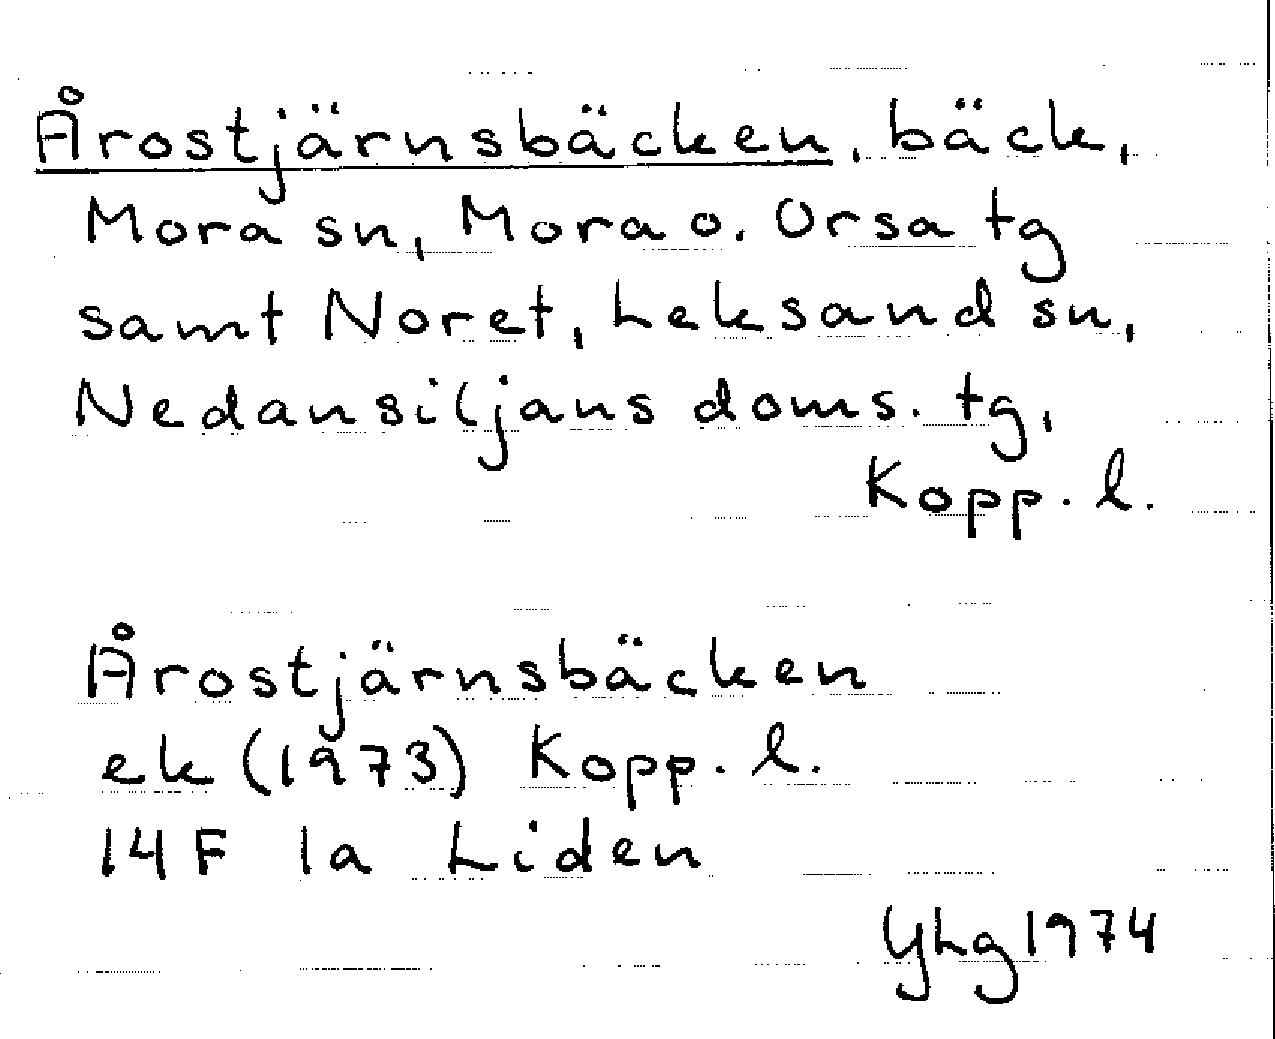 Årostjärnsbäcken, bäck,
Mora sn, Mora o. Orsa tg
samt Noret, Leksand sn,
Nedansiljans doms. tg,
Kopp. l.
Årostjärnsbäcken
ek (1973) Kopp. l.
14F 1a Liden
YLg 1974